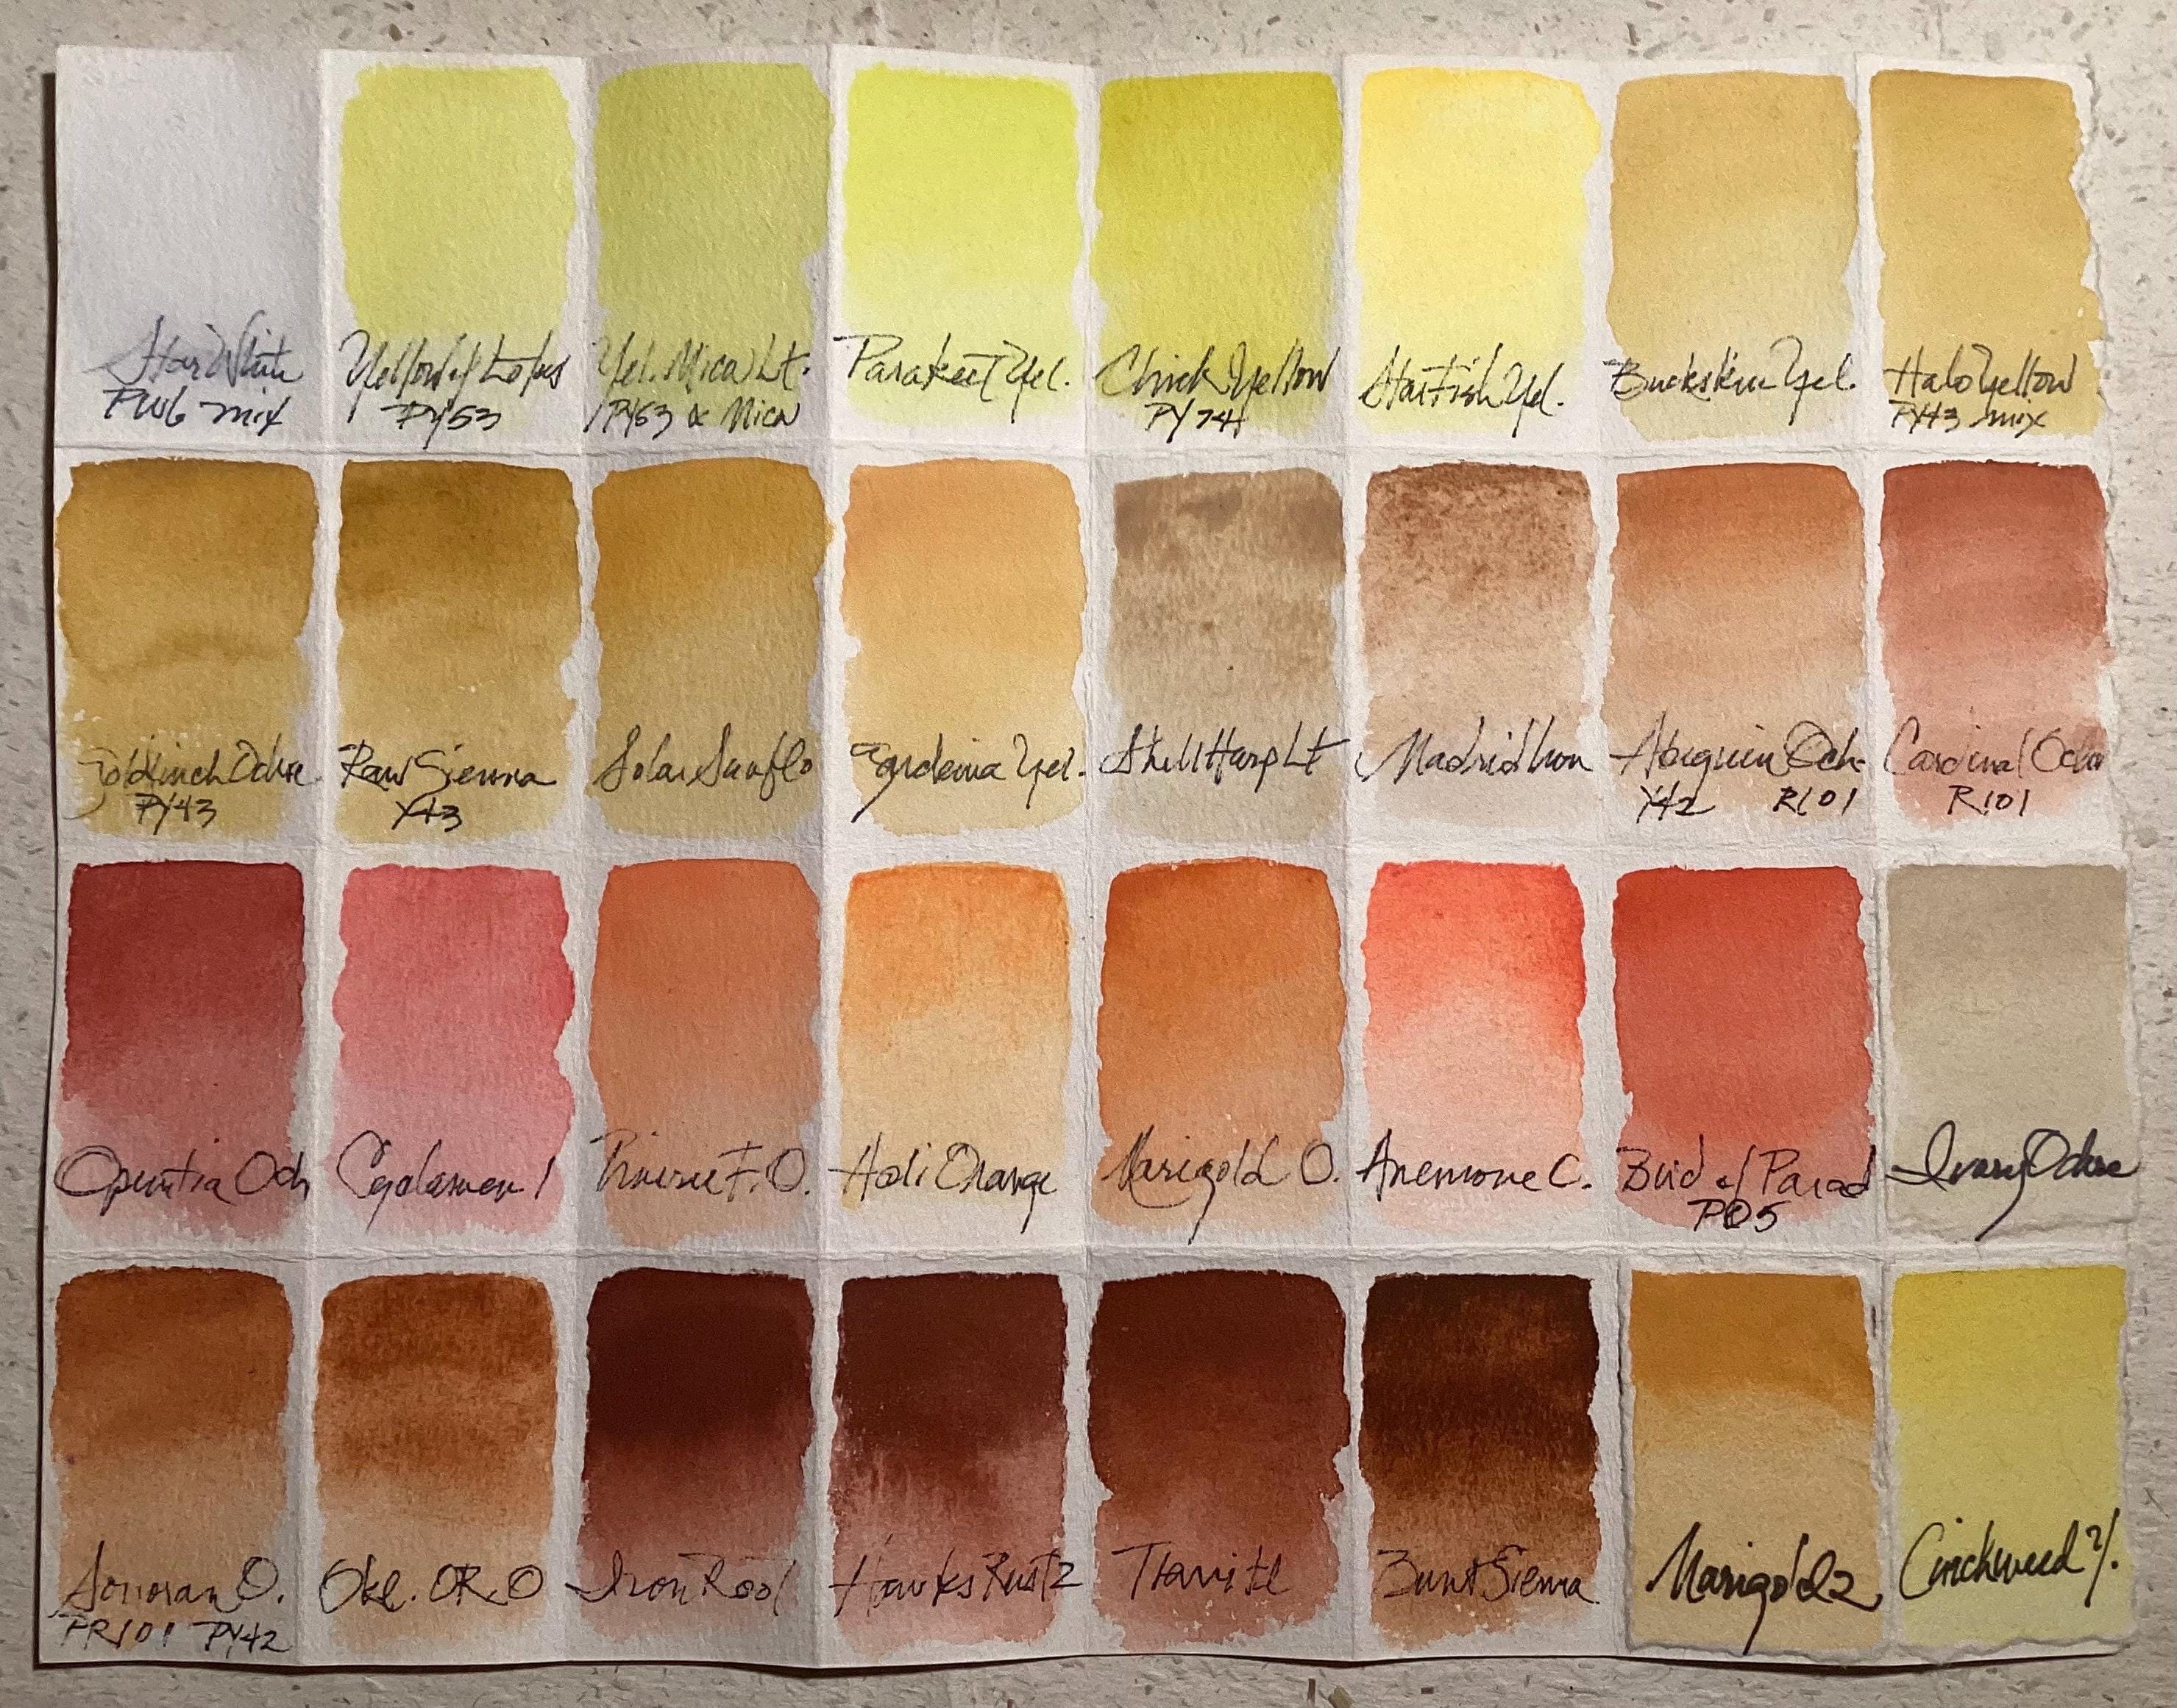 Star White
PW6 mix
Yellow of Lotus
PY53
Yel. Mica Lt.
PY53 & Mica
Parakeet Yel.
Chick Yellow
PY74
Starfish Yel.
Buckskin Yel.
Halo Yellow
PY43 mix
Goldfinch Ochre
PY43
Raw Sienna
Y43
Solar Sunflo
Gardenia Yel.
Shell Harp Lt
Madrid Iron
Och
Y42 R101
Cardinal Ochr
R101
Opuntia Och
Cyclamen 1
F. O.
Holi Orange
Marigold O.
Anemone C.
Bird of Parad
PO5
Ivory Ochre
Sonoran O.
PR101 PY42
Okl. OR. O
Iron Rool
Hawks Rust 2
Burnt Sienna
Marigold 2